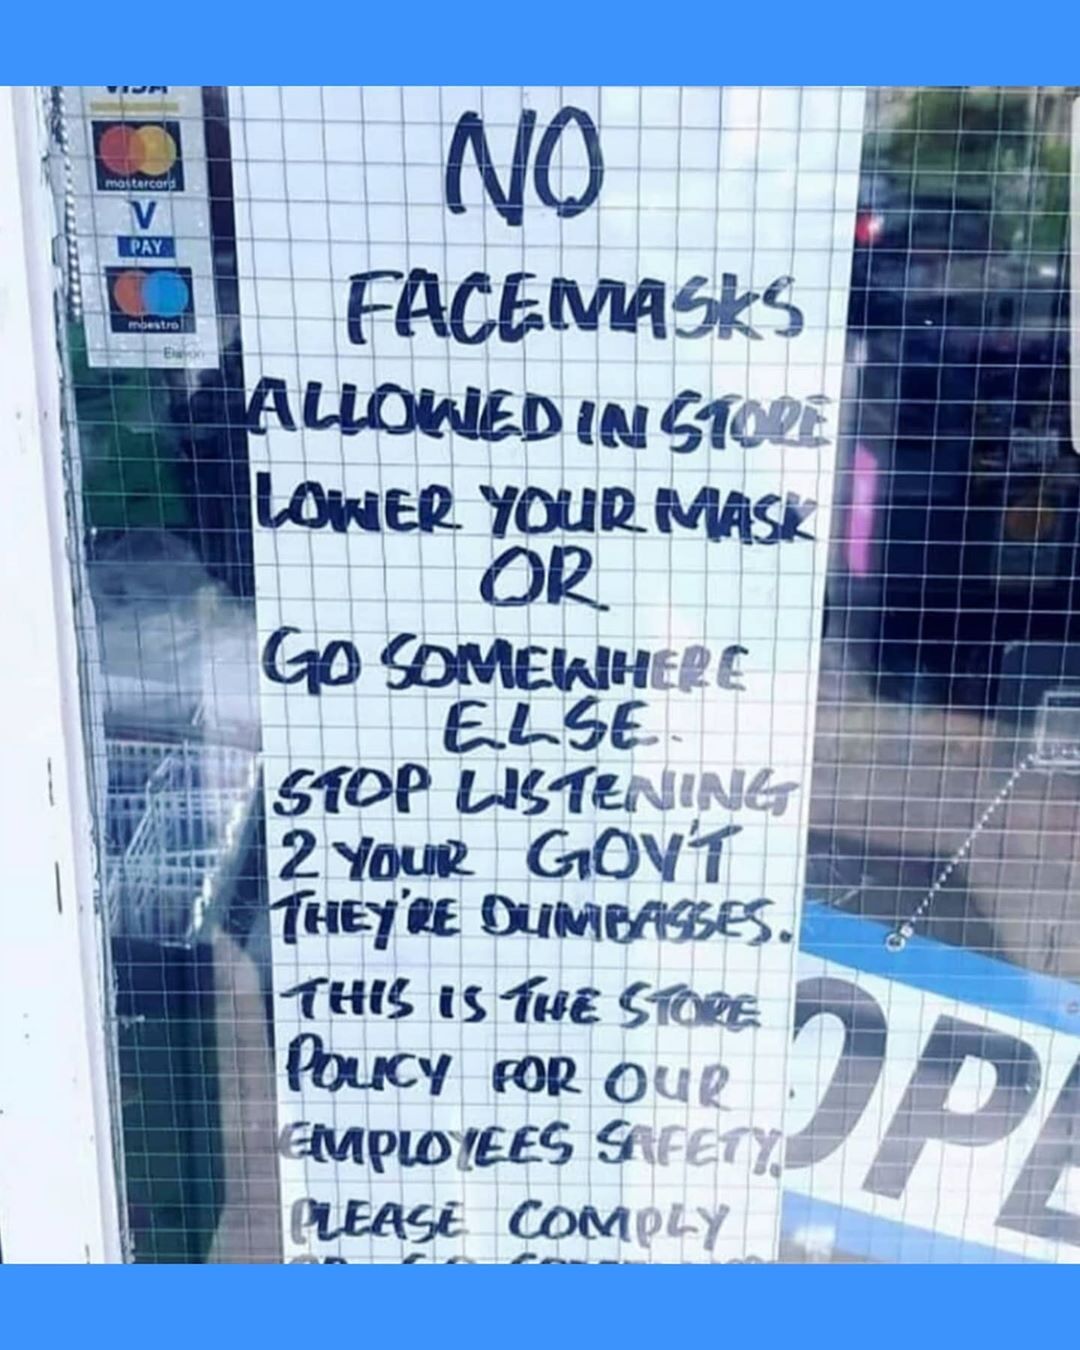 VISA
mastercard
V
PAY
maestro
NO
FACEMASKS
ALLOWED IN STORE
LOWER YOUR MASK
OR
GO SOMEWHERE
ELSE.
STOP LISTENING
2 YOUR GOV'T
THEY'RE DUMBASSES.
THIS IS THE STORE
POLICY FOR OUR
EMPLOYEES SAFETY.
PLEASE COMPLY
OR GO
OPE